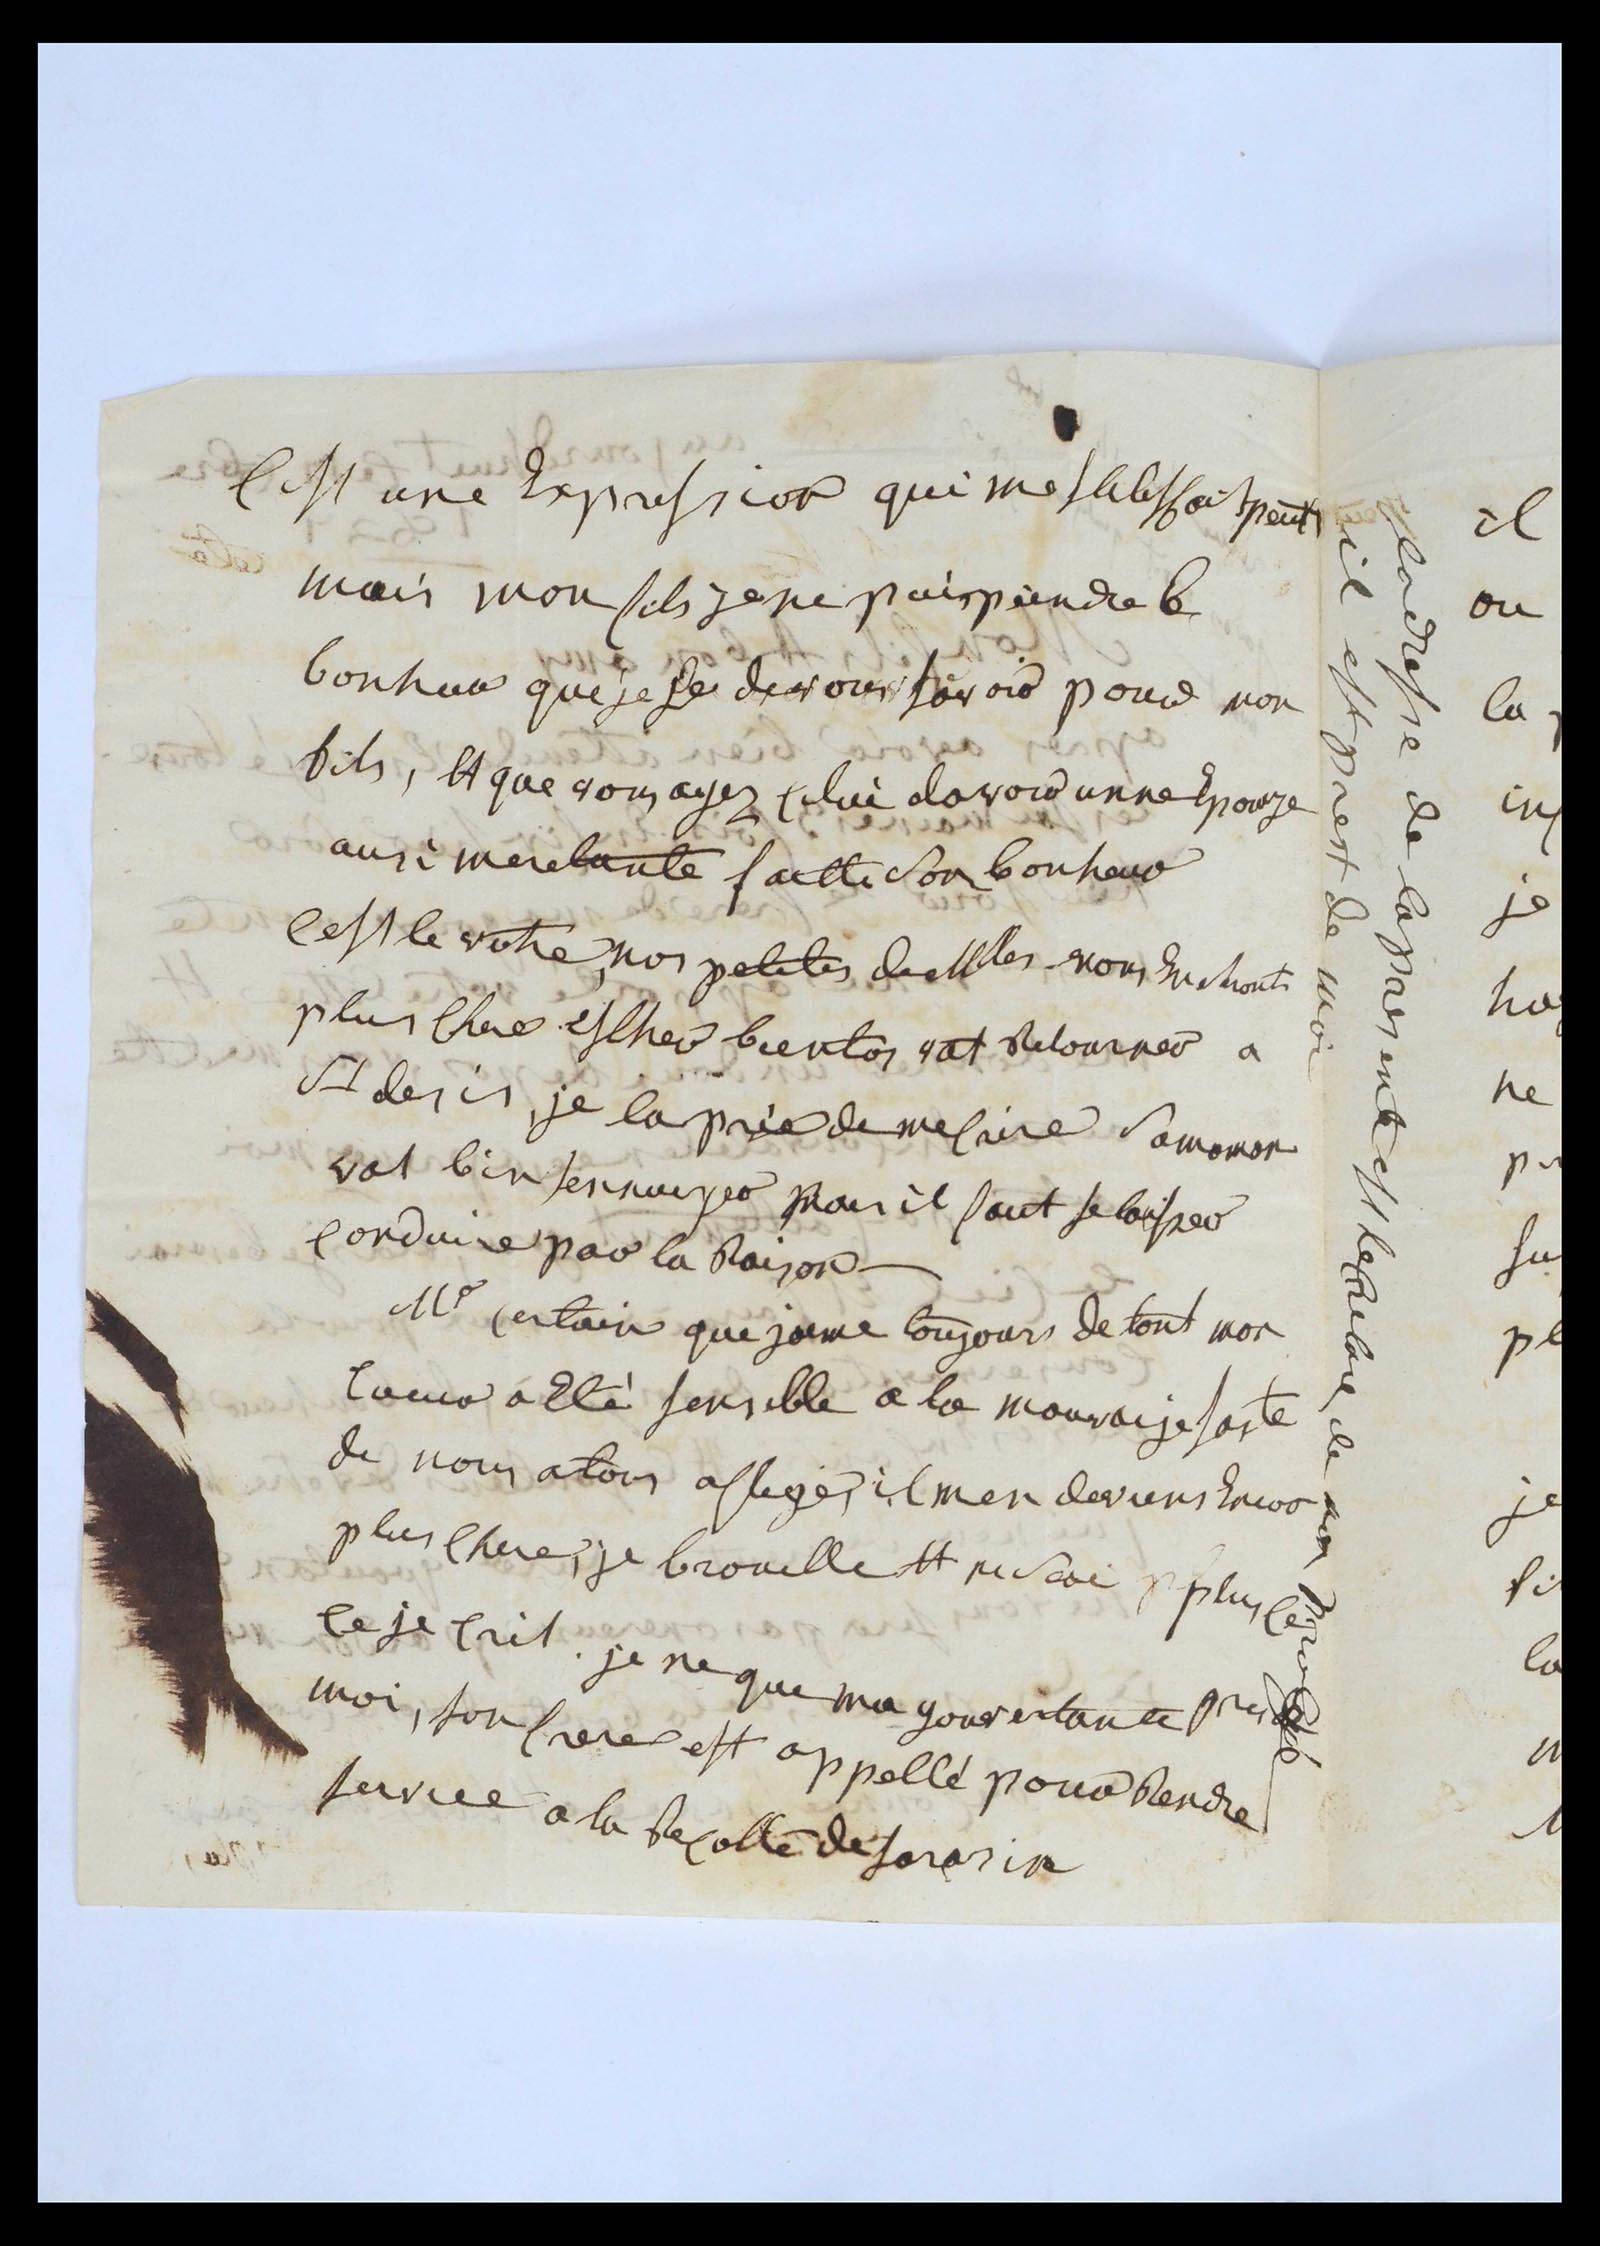 C'est une Expression qui me satisfait peut
mais mon fils je ne puis peindre le
bonheur que je de vous savoir pour mon
fils, Et que vous ayez celui davoir unne Epouze
ausi faitte Son bonheur
c'est le votre, nos petites delles vous
plus chere bientos vat Retourner a
St desir, je la prie de mecrire Samaman
vat bien sennuyer mais il faut se laisser
conduire par la Raison
Mr certain que jaime toujours de tout mon
cœur a Eté sensible a la mauvaije
de nous a tous afligés, il men deviens Encor
plus chere, je brouille Et ne Sai plus
ce je crit. je ne que ma gouvertante pres de
moi, son frere est appellé pour Rendre
service a la Recolte de sarasin
ladresse de la presente est de mon
il est prest de moi
il
ou
la
je
ne
je
la